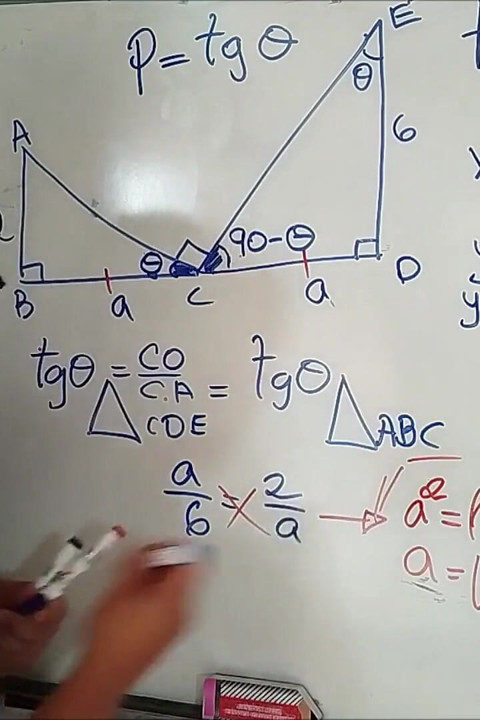 P = tgθ
E
θ
A
6
90-θ
θ
D
B
a
C
a
y
tgθ = CO/C.A = tgθ
CDE
ABC
a/6 = 2/a
a² =
a =